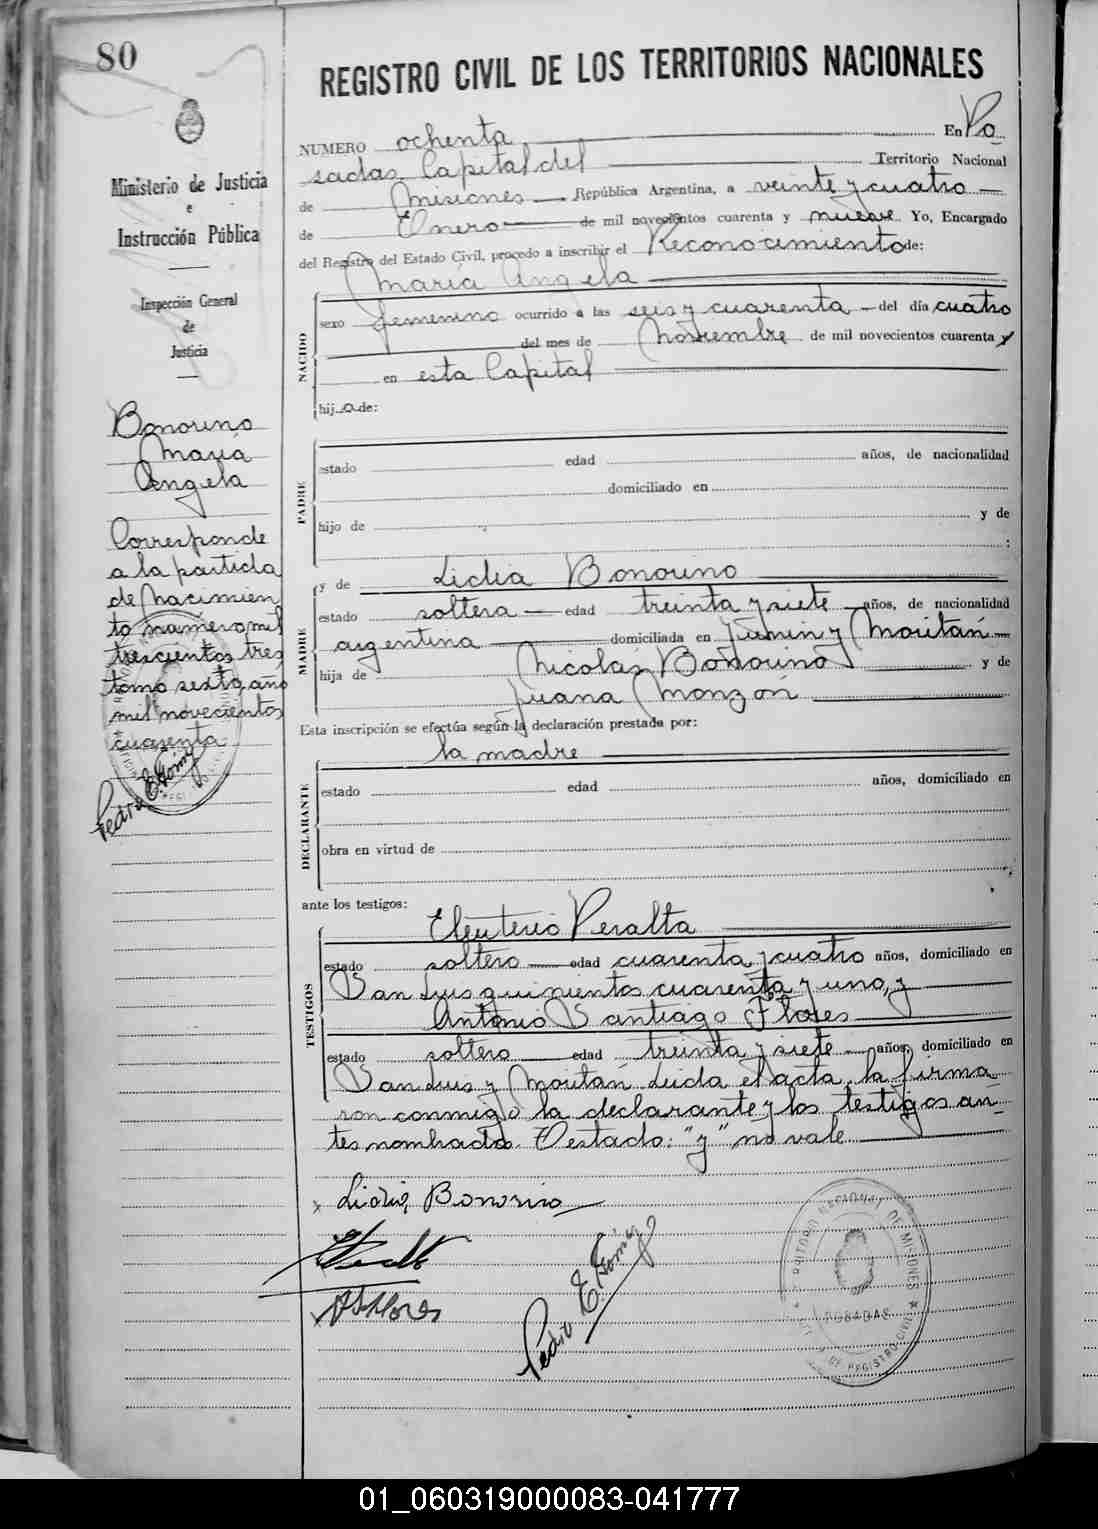 80
REGISTRO CIVIL DE LOS TERRITORIOS NACIONALES
Ministerio de Justicia
e
Instrucción Pública
Inspección General
de
Justicia
Bonorino
María
Angela
Corresponde
a la partida
de nacimien
to número mil
trescientos tres
tomo sexto año
mil novecientos
cuarenta
Pedro E. Gómez
NUMERO ochenta En Po
sadas Capital del Territorio Nacional
de Misiones República Argentina, a veinte y cuatro
de Enero de mil novecientos cuarenta y nueve Yo, Encargado
del Registro del Estado Civil, procedo a inscribir el Reconocimiento de:
María Angela
NACIDO
sexo femenino ocurrido a las seis y cuarenta del día cuatro
del mes de Noviembre de mil novecientos cuarenta y
en esta Capital
hija de:
PADRE
estado edad años, de nacionalidad
domiciliado en
hijo de y de
:
MADRE
y de Lidia Bonorino
estado soltera edad treinta y siete años, de nacionalidad
argentina domiciliada en Junin y Moritán
hija de Nicolás Bonorino y de
Juana Monzón
Esta inscripción se efectúa según la declaración prestada por:
la madre
DECLARANTE
estado edad años, domiciliado en
obra en virtud de
;
ante los testigos:
TESTIGOS
Eleuterio Peralta
estado soltero edad cuarenta y cuatro años, domiciliado en
San Luis quinientos cuarenta y uno, y
Antonio Santiago Flores
estado soltero edad treinta y siete años, domiciliado en
San Luis y Moritán Leida el acta, la firma
ron conmigo la declarante y los testigos an
tes nombrados. Testado: "y" no vale
x Lidia Bonorino
EPeralta
x ASFlores
Pedro E. Gómez
TERRITORIO NACIONAL DE MISIONES
POSADAS
DE REGISTRO CIVIL
01_060319000083-041777